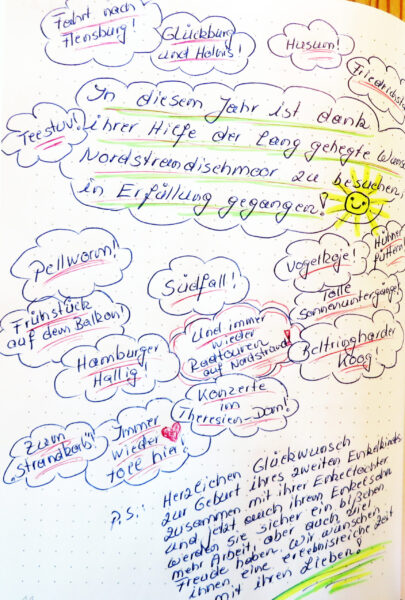 Fahrt nach
Flensburg!
Glücksburg
und Holnis!
Husum!
Friedrichst
Teestuv!
In diesem Jahr ist dank
ihrer Hiefe der lang gehegte Wuns
Nordstrandischmoor zu besuchen,
in Erfüllung gegangen!
Pellworm!
Südfall!
Vogelkoje!
Hühner
füttern!
Tolle
Sonnenuntergänge!
Frühstück
auf dem Balkon!
Und immer
wieder
Radtouren
auf Nordstrand!
Beltringharder
Koog!
Hamburger
Hallig!
Konzerte
im
Theresien-Dom!
Zum
"Strandkorb"!
Immer
wieder
toll hier!
P.S.: Herzlichen Glückwunsch
zur Geburt ihres zweiten Enkelkinds
zusammen mit ihrer Enkeltochter
und jetzt auch ihrem Enkelsohn
werden sie sicher ein bißchen
mehr Arbeit, aber auch viel
Freude haben. Wir wünschen
ihnen eine erlebnisreiche Zeit
mit ihren Lieben!